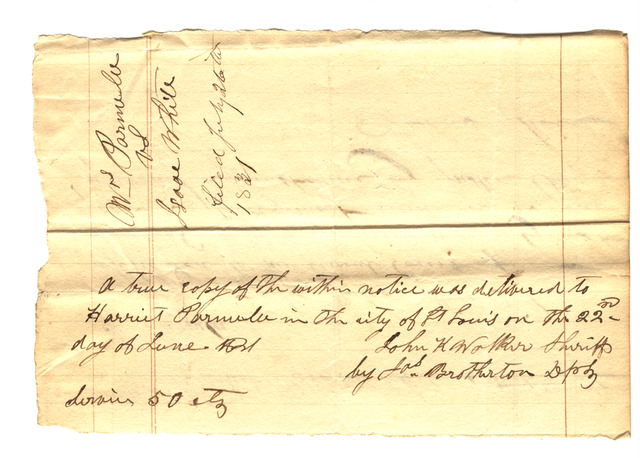 Wm Parmele
vs
Isaac White
filed July 26th
1821
A true copy of the within notice was delivered to
Harriet Parmele in the city of St Louis on the 22nd
day of June 1821
John K Walker Sheriff
by Jos. Brotherton Dpty
Service 50 cts